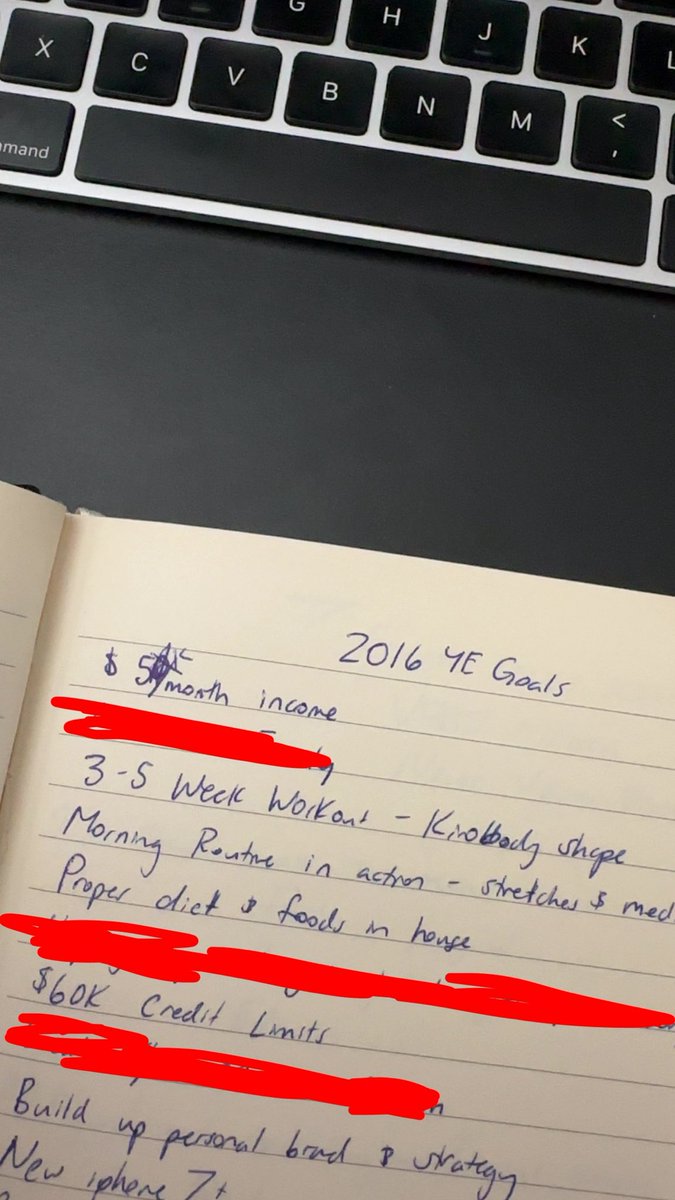 G H J K L
X C V B N M < ,
mmand
2016 YE Goals
$ 5K/month income
3-5 Week Workout - Kinobody shape
Morning Routine in action - stretches $ med
Proper diet $ foods in house
$60K Credit Limits
Build up personal brand $ strategy
New iphone 7+